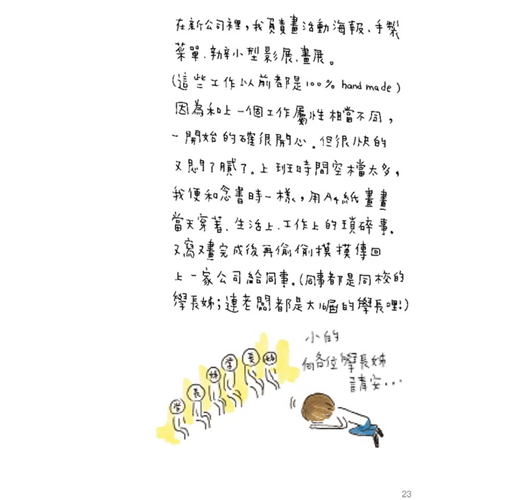 在新公司裡，我負責畫活動海報、手製
菜單、辦小型影展、畫展。
(這些工作以前都是100% hand made)
因為和上一個工作屬性相當不同，
一開始的確很開心。但很快的
又悶了膩了。上班時間空檔太多，
我便和念書時一樣，用A4紙畫畫
當天穿著、生活上、工作上的瑣碎事。
又寫又畫完成後再偷偷摸摸傳回
上一家公司給同事。(同事都是同校的
學長姊；連老闆都是大16屆的學長哩！)
小的
向各位學長姊
請安...
学 長 姊 学 長 姊
23